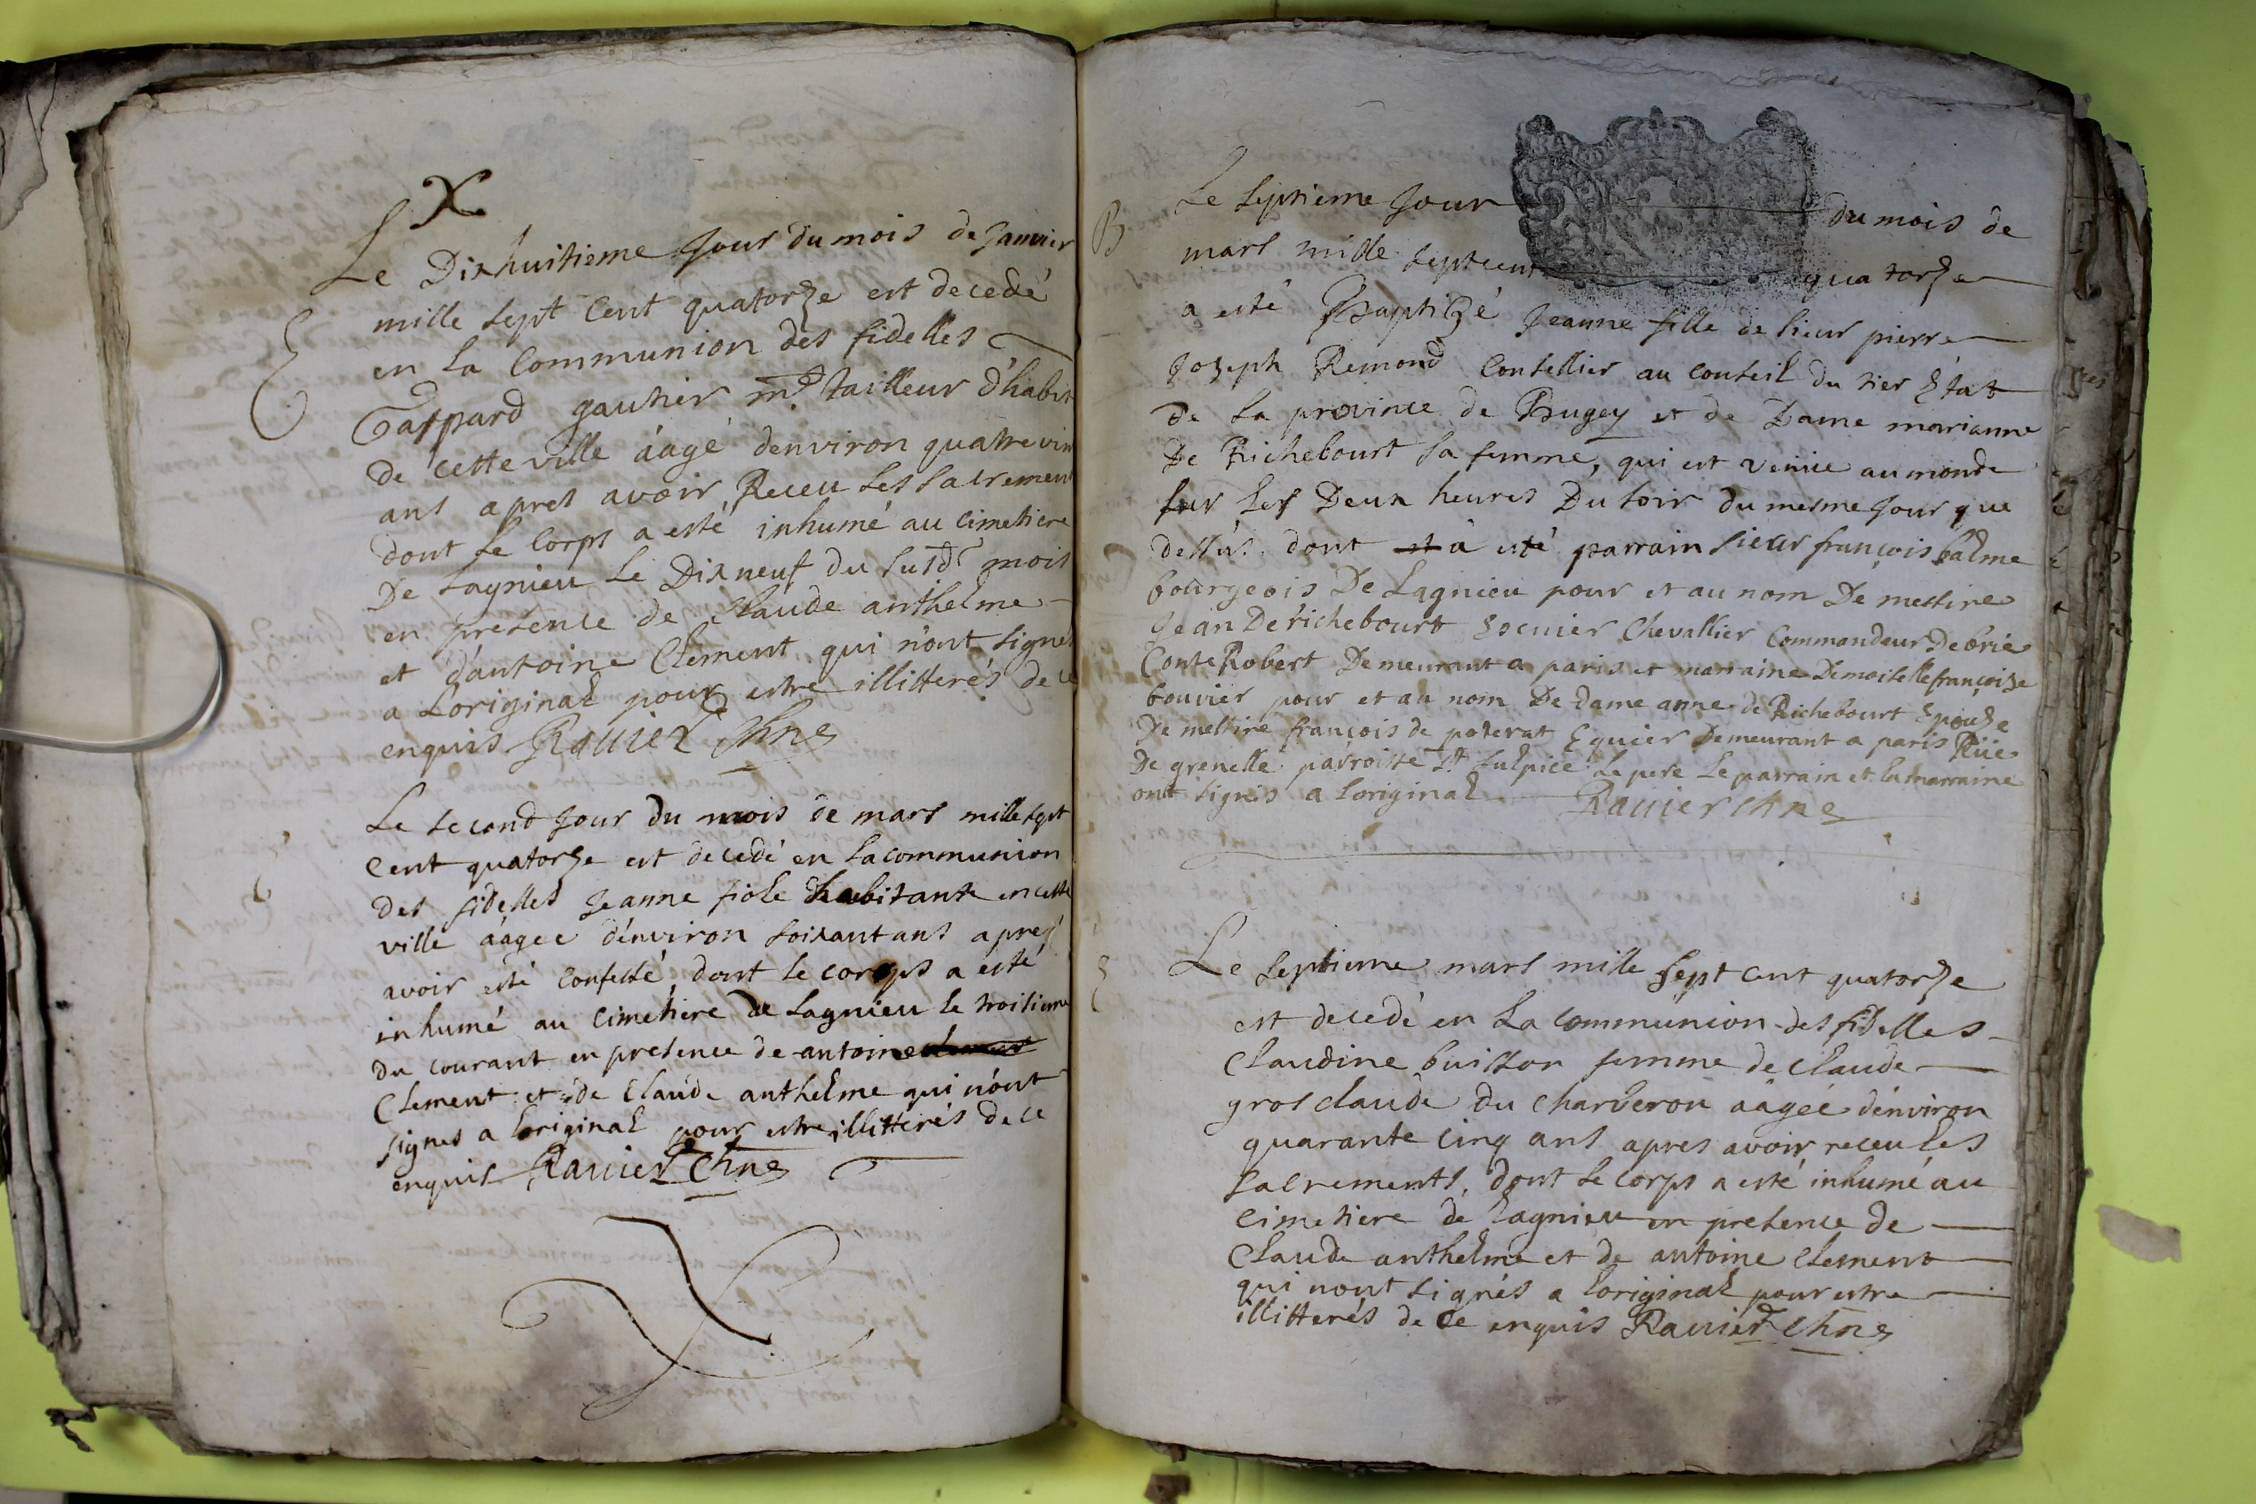 X
Le Dixhuitieme Jour du mois de Janvier
mille sept Cent quatorze est decedé
en la Communion des fidelles
Gaspard gautier md tailleur d'habit
de cette ville áagé d'environ quatre vin
ans apres avoir Receu les sacrement
dont le Corps a esté inhumé au Cimetiere
De Lagnieu le Dixneuf du susd mois
en presence de Claude anthelme
et d'antoine Clement qui n'ont signes
a Loriginal pour estre illitterés de ce
enquis Ravier
Le second Jour du mois de mars mille sept
Cent quatorze est decedé en la communion
des fidelles Jeanne fiole habitante en cette
ville áagee d'environ soixant ans apres
avoir esté Confessé, dont le corps a esté
inhumé au Cimetiere de Lagnieu le troisieme
du courant en presence de antoine
Clement et de Claude anthelme qui n'ont
signes a loriginal pour estre illitterés de ce
enquis Ravier
B
Le septieme Jour du mois de
mars mille septcent quatorze
a esté Baptizé Jeanne fille de sieur pierre
Joseph Remond Consellier au Conseil du tier Etat
De la province de Bugey et de Dame marianne
De Richebourt sa femme, qui est venue au monde
sur les Deux heures Du soir du mesme Jour que
dessus. dont a esté parrain sieur françois balme
bourgeois De Lagnieu pour et au nom De messire
Jean De richebourt Ecuier Chevallier Commandeur De brie
Conte Robert Demeurant a paris et marraine Demoiselle françoize
bouvier pour et au nom De Dame anne de Richebourt Epouze
De messire françois de poterat Equier Demeurant a paris Rüe
De grenelle parroisse St sulpice. Le pere Le parrain et la marraine
ont signés a loriginal Ravier
Le septieme mars mille sept cent quatorze
est decedé en la communion des fidelles
Claudine buisson femme de Claude
gros claude du Charveron áagée d'environ
quarante Cinq ans apres avoir receu les
sacrements, dont le corps a esté inhumé au
Cimetiere de Lagnieu en presence de
Claude anthelme et de antoine Clement
qui nont signés a loriginal pour estre
illitterés de ce enquis Ravier